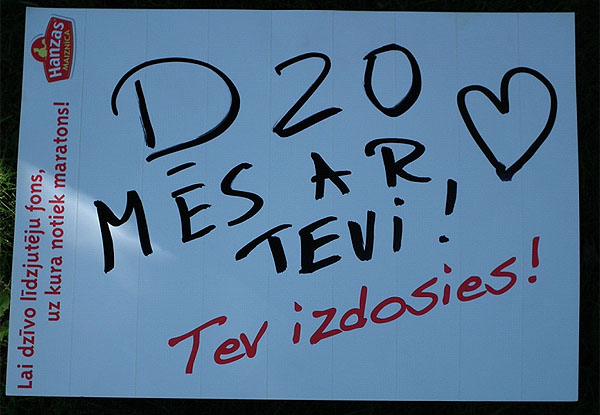 Hanzas
MAIZNĪCA
Lai dzīvo līdzjutēju fons,
uz kura notiek maratons!
D20
MĒS AR
TEVi!
Tev izdosies!